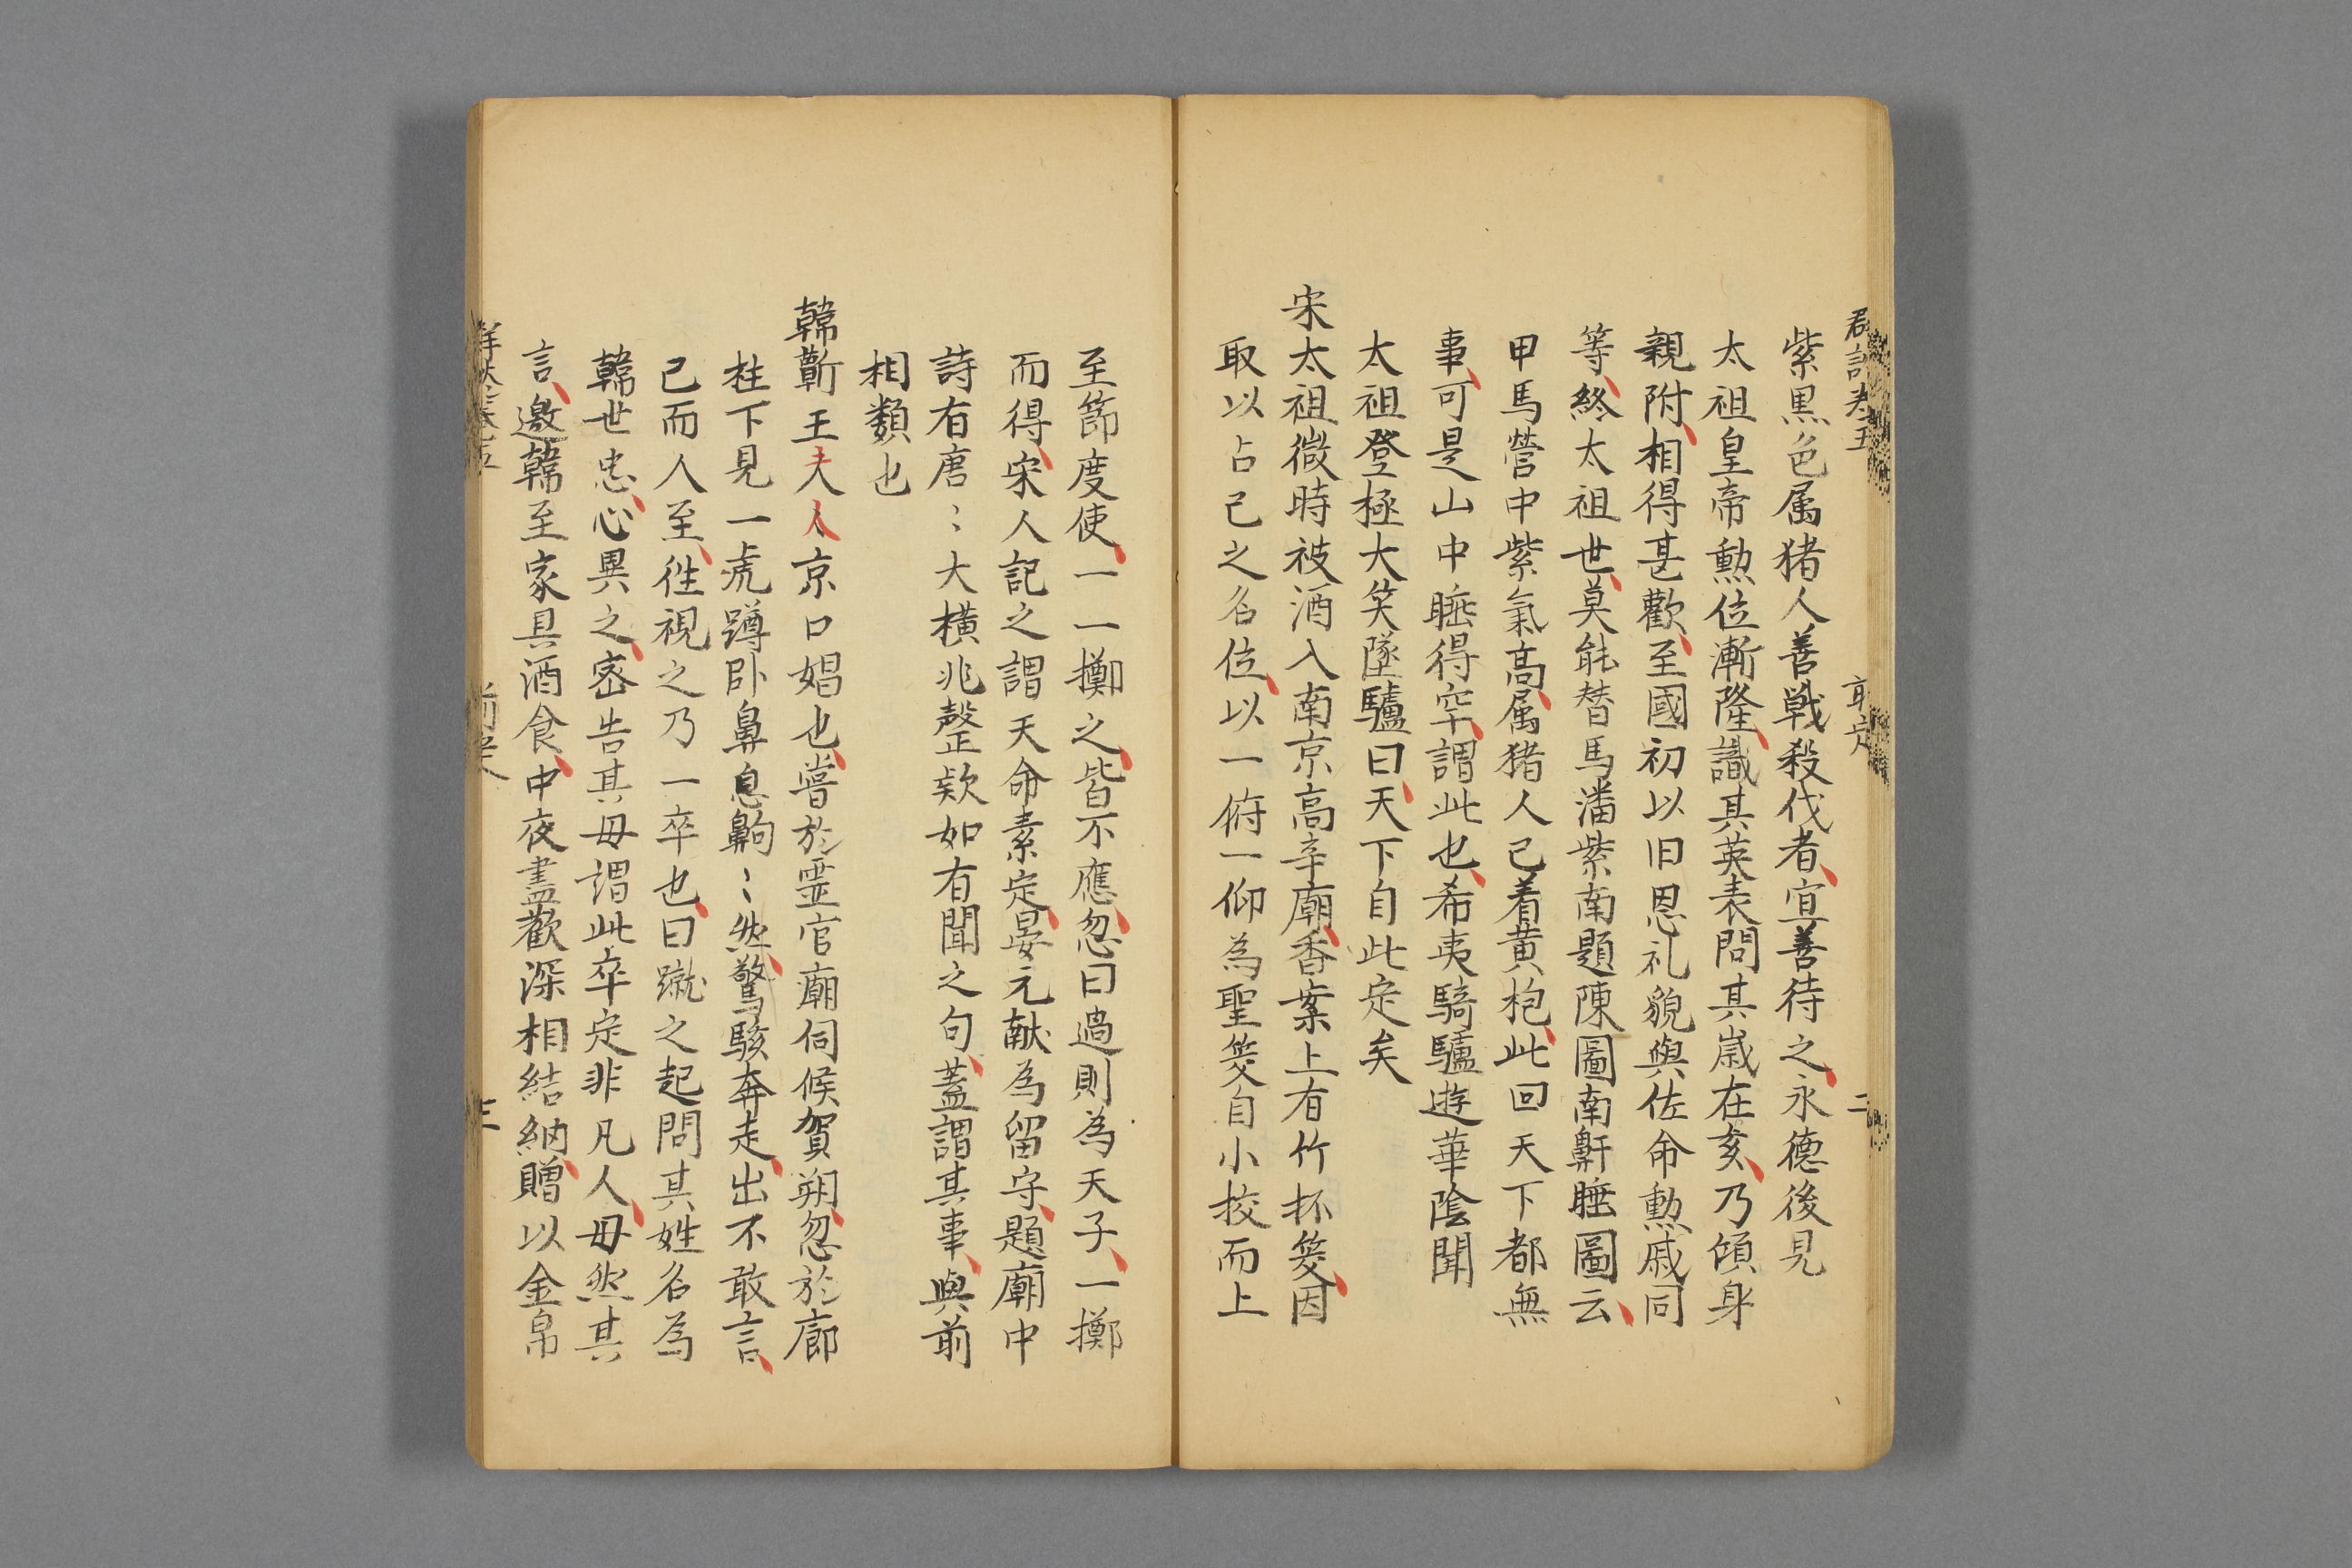 紫黒色属猪人善戦殺伐者、宜善待之、永德後見
太祖皇帝勲位漸隆、識其英表問其歳在亥、乃傾身
親附、相得甚歡、至國初以旧恩礼貌與佐命勲戚同
等、終太祖世、莫能替馬潘紫南題陳圖南鼾睡圖云、
甲馬營中紫氣高、属猪人已着黄袍、此回天下都無
事、可是山中睡得牢、謂此也、希夷騎驢遊華陰聞
太祖登極大笑墜驢曰、天下自此定矣
宋太祖微時被酒入南京高辛廟、香案上有竹抔筊、因
取以占己之名位、以一俯一仰為聖筊自小校而上
至節度使、一一擲之、皆不應、忽曰過則為天子、一擲
而得、宋人記之謂天命素定、晏元献為留守、題廟中
詩有唐〻大横兆聲欵如有聞之句、蓋謂其事、與前
相類也
韓蘄王夫人京口娼也、嘗於霊官廟伺候賀朔、忽於廊
柱下見一虎蹲卧鼻息齁〻然、驚駭奔走、出不敢言、
已而人至、徃視之乃一卒也、曰蹴之起問其姓名為
韓世忠、心異之、密告其母謂此卒定非凡人、母然其
言、邀韓至家具酒食、中夜盡歡深相結納、贈以金帛